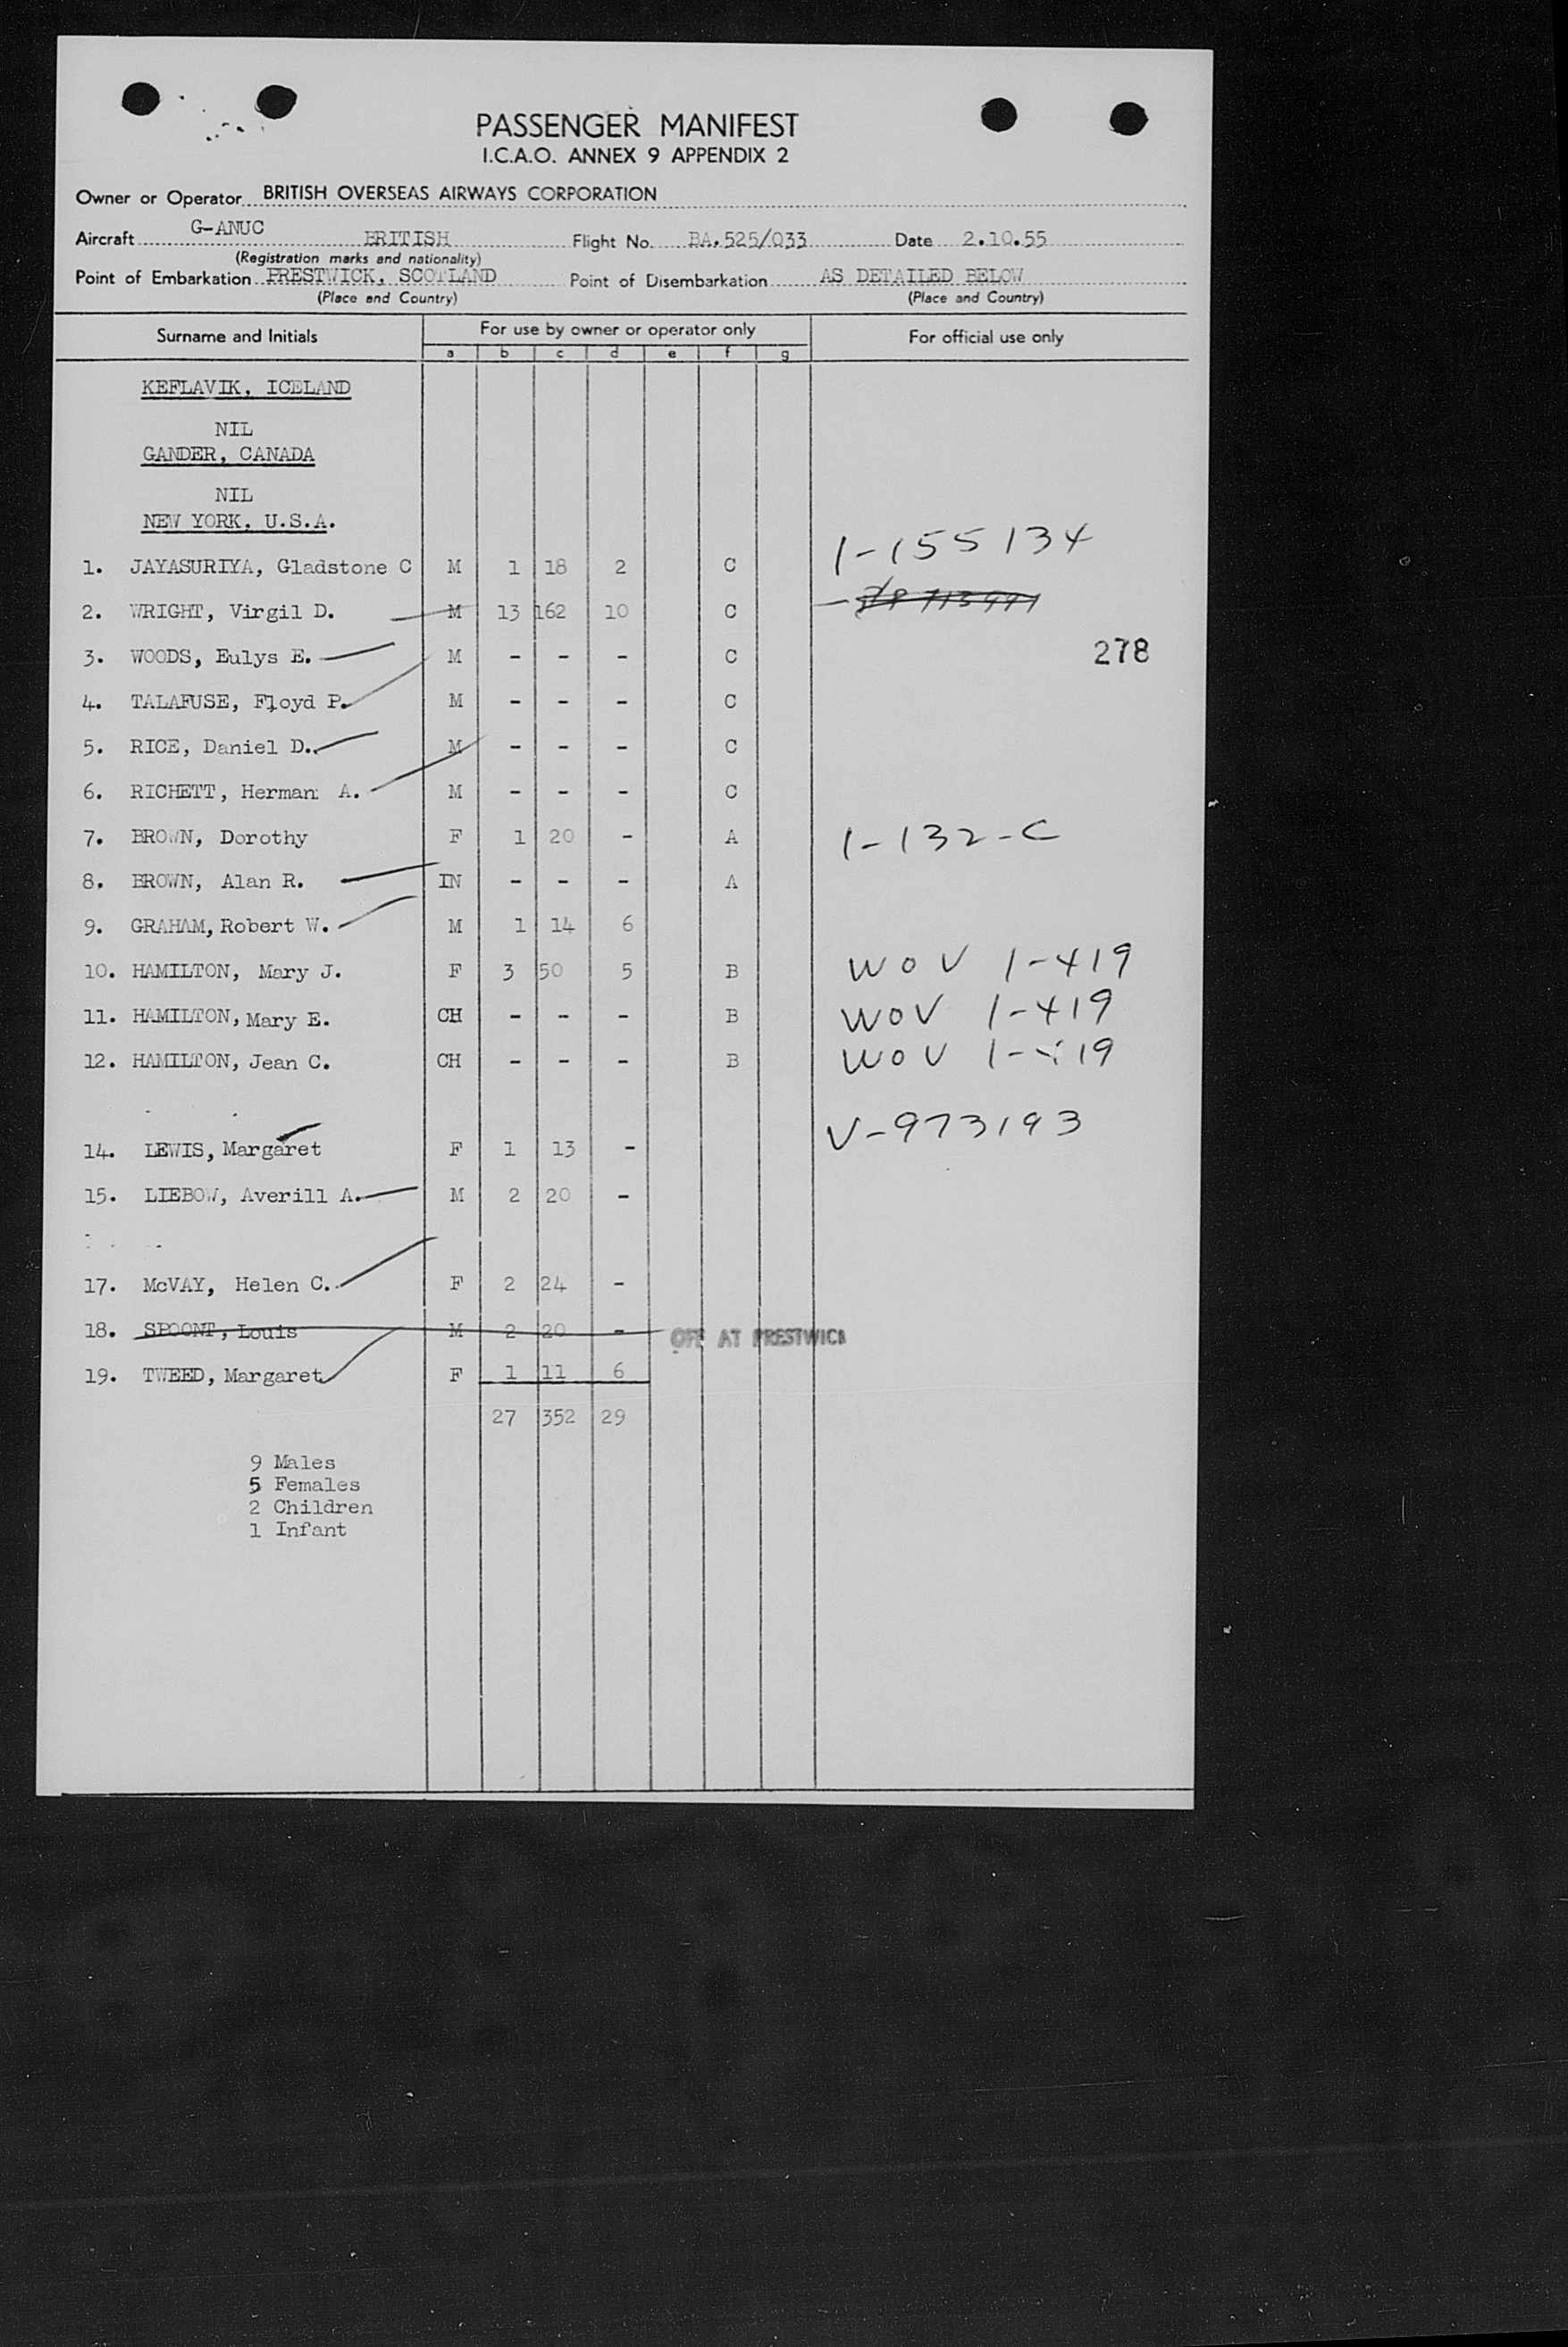 PASSENGER MANIFEST
I.C.A.O. ANNEX 9 APPENDIX 2
Owner or Operator BRITISH OVERSEAS AIRWAYS CORPORATION
Aircraft G-ANUC BRITISH Flight No. BA.525/033 Date 2.10.55
(Registration marks and nationality)
Point of Embarkation PRESTWICK, SCOTLAND Point of Disembarkation AS DETAILED BELOW
(Place and Country) (Place and Country)
Surname and Initials For use by owner or operator only For official use only
a b c d e f g
KEFLAVIK, ICELAND
NIL
GANDER, CANADA
NIL
NEW YORK, U.S.A.
1. JAYASURIYA, Gladstone C M 1 18 2 C 1-155134
2. WRIGHT, Virgil D. M 13 162 10 C
278
3. WOODS, Eulys E. M - - - C
4. TALAFUSE, Floyd P. M - - - C
5. RICE, Daniel D. M - - - C
6. RICHETT, Herman A. M - - - C
7. BROWN, Dorothy F 1 20 - A 1-132-C
8. BROWN, Alan R. IN - - - A
9. GRAHAM, Robert W. M 1 14 6
10. HAMILTON, Mary J. F 3 50 5 B WOV 1-419
11. HAMILTON, Mary E. CH - - - B WOV 1-419
12. HAMILTON, Jean C. CH - - - B WOV 1-419
14. LEWIS, Margaret F 1 13 - V-973193
15. LIEBOW, Averill A. M 2 20 -
17. McVAY, Helen C. F 2 24 -
18. SPOONT, Louis M 2 20 - OFF AT PRESTWICK
19. TWEED, Margaret F 1 11 6
27 352 29
9 Males
5 Females
2 Children
1 Infant